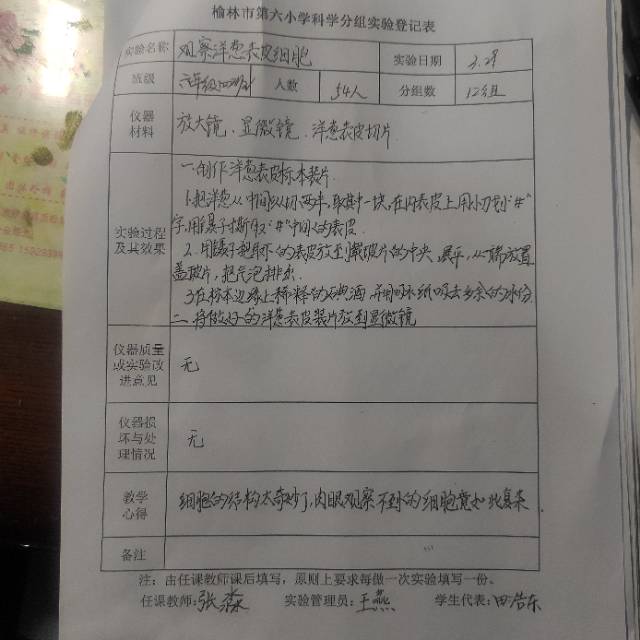 榆林市第六小学科学分组实验登记表
实验名称 观察洋葱表皮细胞 实验日期 3.28
班级 六年级 人数 54人 分组数 12组
仪器材料 放大镜、显微镜、洋葱表皮切片
实验过程及其效果
一、制作洋葱表皮标本装片
1.把洋葱从中间纵切两半,取其中一块,在内表皮上用小刀划"#"
字,用镊子撕取"#"中间的表皮.
2.用镊子把取下的表皮放到载玻片的中央,展平,从一端放置
盖玻片,把气泡排出.
3.在标本边缘上稀释的碘酒,并用吸水纸吸去多余的水份
二、将做好的洋葱表皮装片放到显微镜
仪器质量或实验改进意见 无
仪器损坏与处理情况 无
教学心得 细胞的结构太奇妙了,肉眼观察不到的细胞竟如此复杂
备注
注:由任课教师课后填写,原则上要求每做一次实验填写一份。
任课教师:张淼 实验管理员:王燕 学生代表:田浩东